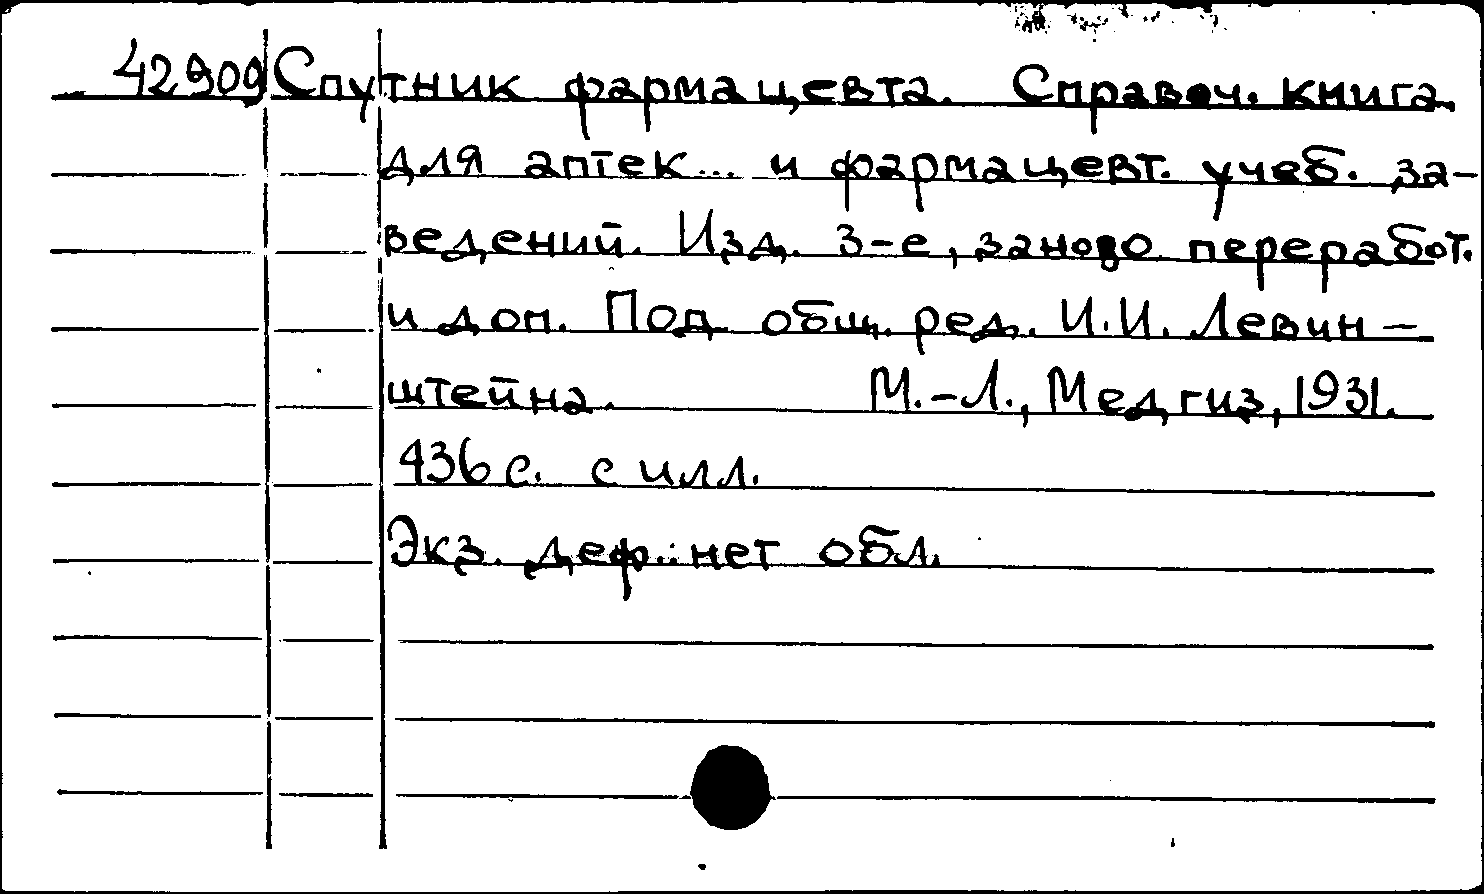 42909 Спутник фармацевта. Справоч. книга
для аптек... и фармацевт. учеб. за-
ведений. Изд. 3-е, заново переработ.
и доп. Под общ. ред. И.И. Левин-
штейна. М.-Л., Медгиз, 1931.
436 с. с илл.
Экз. деф.: нет обл.